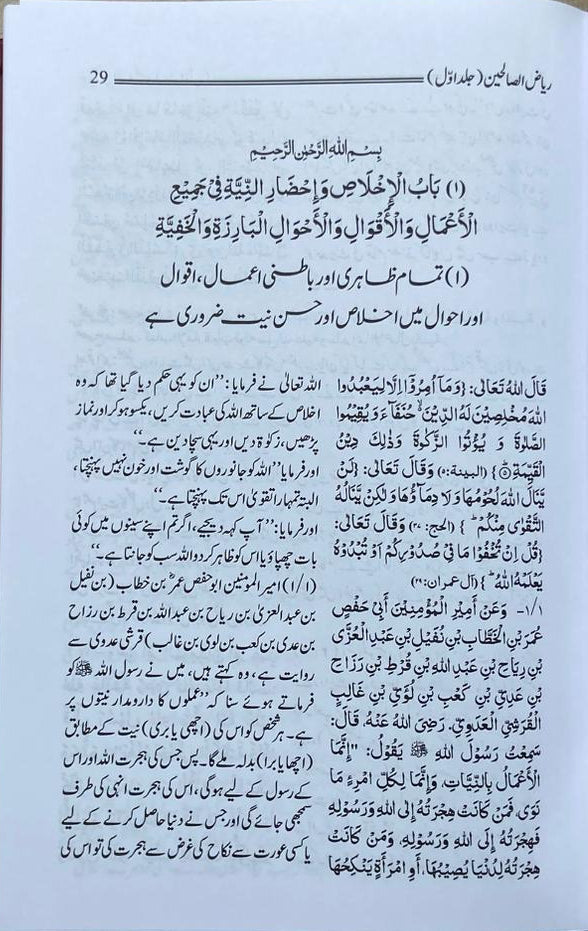 ریاض الصالحین (جلد اوّل) 29
بِسْمِ اللهِ الرَّحْمٰنِ الرَّحِيْمِ
(۱) بَابُ الْإِخْلَاصِ وَإِحْضَارِ النِّيَّةِ فِيْ جَمِيْعِ
الْأَعْمَالِ وَالْأَقْوَالِ وَالْأَحْوَالِ الْبَارِزَةِ وَالْخَفِيَّةِ
(۱) تمام ظاہری اور باطنی اعمال، اقوال
اور احوال میں اخلاص اور حسن نیت ضروری ہے
قَالَ اللهُ تَعَالٰى: {وَمَآ اُمِرُوْٓا اِلَّا لِيَعْبُدُوا
اللهَ مُخْلِصِيْنَ لَهُ الدِّيْنَ حُنَفَآءَ وَيُقِيْمُوا
الصَّلٰوةَ وَ يُؤْتُوا الزَّكٰوةَ وَذٰلِكَ دِيْنُ
الْقَيِّمَةِ} (البینہ:۵) وَقَالَ تَعَالٰى: {لَنْ
يَّنَالَ اللهَ لُحُوْمُهَا وَلَا دِمَآؤُهَا وَلٰكِنْ يَّنَالُهُ
التَّقْوٰى مِنْكُمْ} (الحج: ۳۷) وَقَالَ تَعَالٰى:
{قُلْ اِنْ تُخْفُوْا مَا فِيْ صُدُوْرِكُمْ اَوْ تُبْدُوْهُ
يَعْلَمْهُ اللهُ} (آل عمران: ۲۹)
۱/۱- وَعَنْ أَمِيْرِ الْمُؤْمِنِيْنَ أَبِيْ حَفْصٍ
عُمَرَ بْنِ الْخَطَّابِ بْنِ نُفَيْلِ بْنِ عَبْدِ الْعُزّٰى
بْنِ رِيَاحِ بْنِ عَبْدِ اللهِ بْنِ قُرْطِ بْنِ رَزَاحِ
بْنِ عَدِيِّ بْنِ كَعْبِ بْنِ لُؤَيِّ بْنِ غَالِبِ
الْقُرَشِيِّ الْعَدَوِيِّ، رَضِيَ اللهُ عَنْهُ، قَالَ:
سَمِعْتُ رَسُوْلَ اللهِ ﷺ يَقُوْلُ: "إِنَّمَا
الْأَعْمَالُ بِالنِّيَّاتِ، وَإِنَّمَا لِكُلِّ امْرِءٍ مَا
نَوٰى فَمَنْ كَانَتْ هِجْرَتُهُ إِلَى اللهِ وَرَسُوْلِهِ
فَهِجْرَتُهُ إِلَى اللهِ وَرَسُوْلِهِ، وَمَنْ كَانَتْ
هِجْرَتُهُ لِدُنْيَا يُصِيْبُهَا، أَوِ امْرَأَةٍ يَنْكِحُهَا
اللہ تعالیٰ نے فرمایا: ’’ان کو یہی حکم دیا گیا تھا کہ وہ
اخلاص کے ساتھ اللہ کی عبادت کریں، یکسو ہوکر اور نماز
پڑھیں، زکوٰة دیں اور یہی سچا دین ہے۔‘‘
اور فرمایا ’’اللہ کو جانوروں کا گوشت اور خون نہیں پہنچتا،
البتہ تمہارا تقویٰ اس تک پہنچتا ہے۔‘‘
اور فرمایا: ’’آپ کہہ دیجیے، اگر تم اپنے سینوں میں کوئی
بات چھپاؤ یا اس کو ظاہر کر دو اللہ سب کو جانتا ہے۔‘‘
(۱/۱) امیر المؤمنین ابو حفص عمرؓ بن خطاب (بن نفیل
بن عبدالعزیٰ بن ریاح بن عبداللہ بن قرط بن رزاح
بن عدی بن کعب بن لوی بن غالب) قرشی عدوی سے
روایت ہے، وہ کہتے ہیں، میں نے رسول اللہ ﷺ کو
فرماتے ہوئے سنا کہ ’’عملوں کا دارومدار نیتوں پر
ہے۔ ہر شخص کو اس کی (اچھی یا بری) نیت کے مطابق
(اچھا یا برا) بدلہ ملے گا۔ پس جس کی ہجرت اللہ اور اس
کے رسول کے لیے ہوگی، اس کی ہجرت انہی کی طرف
سمجھی جائے گی اور جس نے دنیا حاصل کرنے کے لیے
یا کسی عورت سے نکاح کی غرض سے ہجرت کی تو اس کی